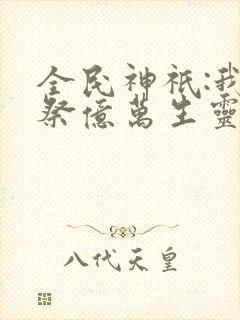 全民神祇:我
祭億萬生靈
八代天皇